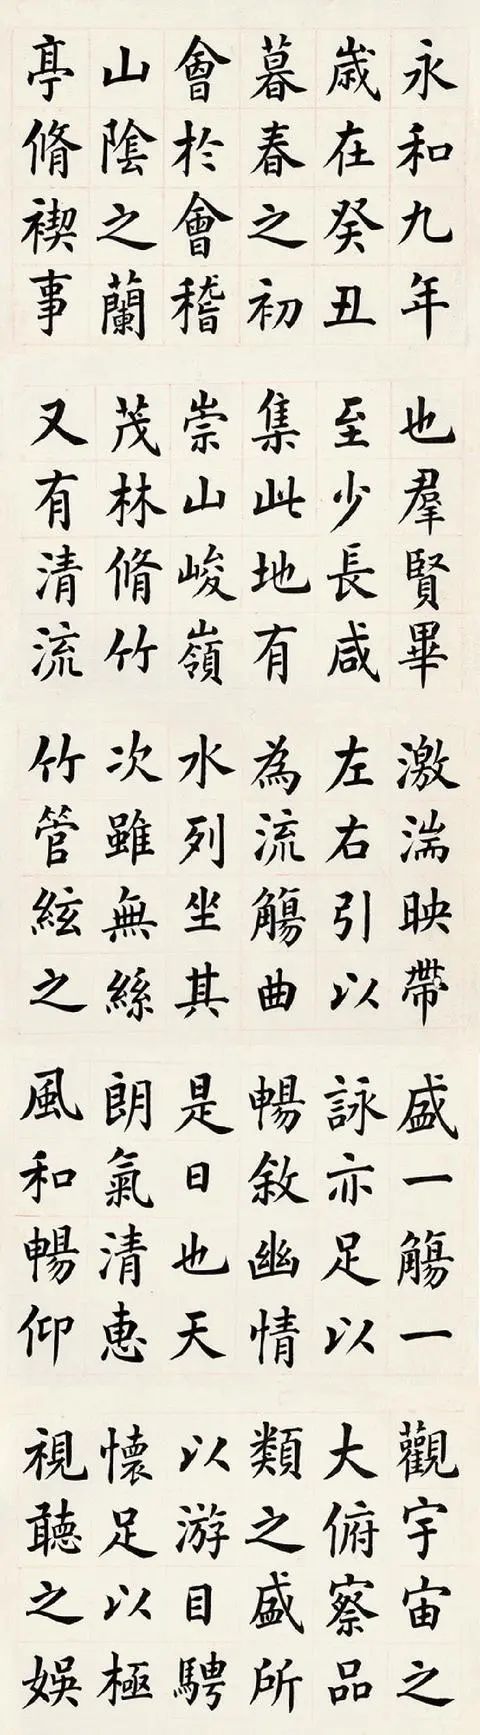 永和九年
歲在癸丑
暮春之初
會於會稽
山陰之蘭
亭脩禊事
也羣賢畢
至少長咸
集此地有
崇山峻嶺
茂林脩竹
又有清流
激湍映帶
左右引以
為流觴曲
水列坐其
次雖無絲
竹管絃之
盛一觴一
詠亦足以
暢敘幽情
是日也天
朗氣清惠
風和暢仰
觀宇宙之
大俯察品
類之盛所
以游目騁
懷足以極
視聽之娛